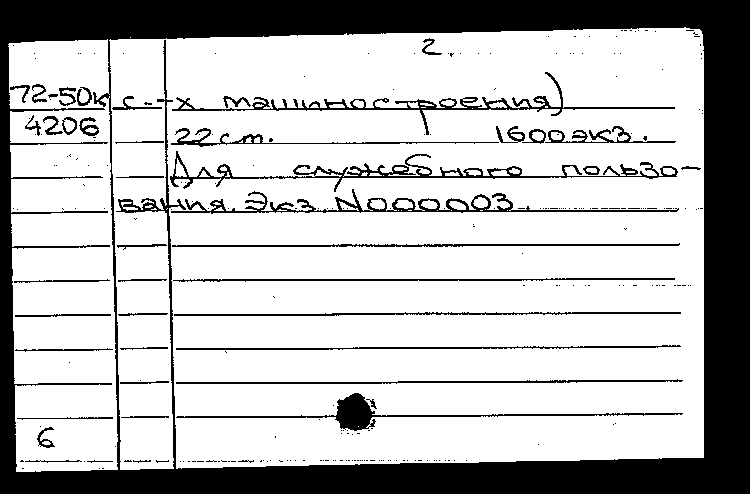 2.
72-50к с.-х. машиностроения)
4206 22 ст. 1600 экз.
Для служебного пользо-
вания. Экз. N000003.
6